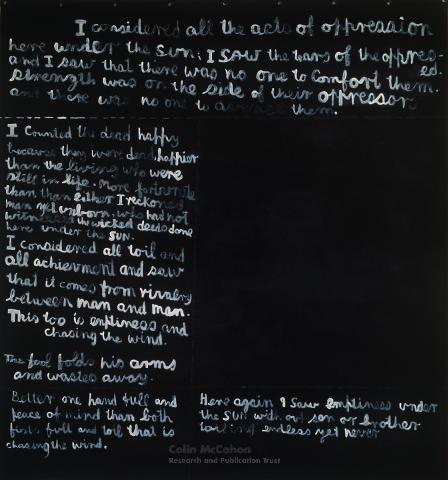 I considered all the acts of oppression
here under the sun; I saw the tears of the oppres-
sed
and I saw that there was no one to comfort them.
strength was on the side of their oppressor
and there was no one to avenge them.
I counted the dead happy
because they were dead, happier
than the living who were
still in life. More fortunate
than than either I reckoned
man yet unborn, who had not
witnessed the wicked deeds done
here under the sun.
I considered all toil and
all achievment and saw
that it comes from rivalry
between man and man.
This too is emptiness and
chasing the wind.
The fool folds his arms
and wastes away.
Better one hand full and
peace of mind than both
fists full and toil that is
chasing the wind.
Here again I saw emptiness under
the sun with out son or brother
toiling endless yet never
Colin McCahon
Research and Publication Trust